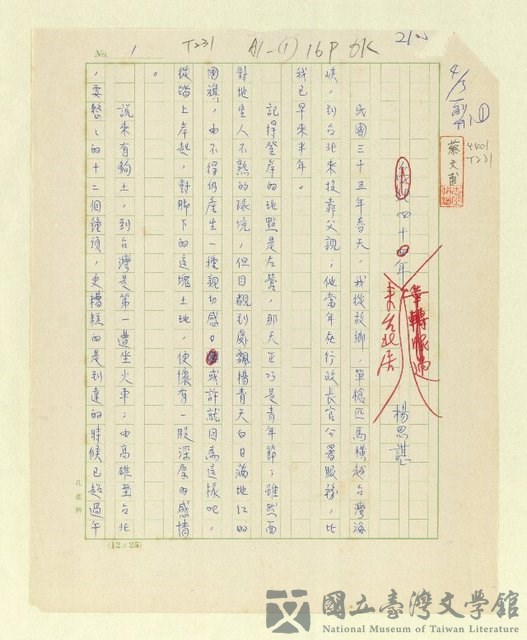 No. 1
T231
A1-(1) 16P 6K
210
4/5
①
蔡文甫
4401
T231
四十四年
楊思諶
民國三十五年春天，我從故鄉，單槍匹馬橫越台灣海
峽，到台北來投靠父親，他當年在行政長官公署服務，比
我已早來半年。
記得登岸的地點是左營，那天正巧是青年節；雖然面
對地生人不熟的環境，但目觀到處飄揚青天白日滿地紅的
國旗，由不得仍產生一種親切感。或許就因為這樣吧，
從踏上岸起，對腳下的這塊土地，便懷有一股深厚的感情
。
說來有夠土，到台灣是第一遭坐火車；由高雄至台北
，要整整的十二個鐘頭，更糟糕的是到達的時候已超過午
(12×25)
國立臺灣文學館
National Museum of Taiwan Literature